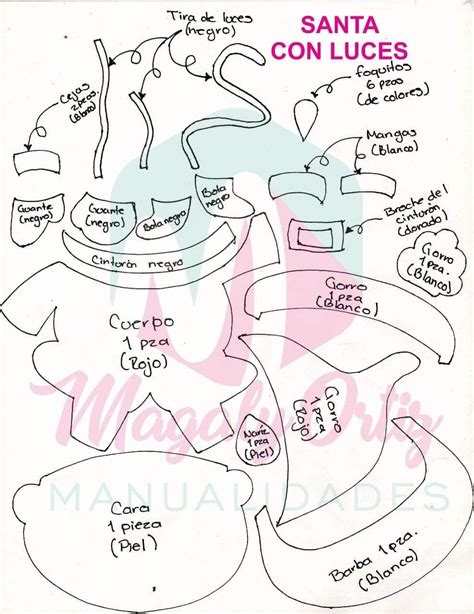 SANTA
CON LUCES
Tira de luces
(negro)
Cejas
2 pzas.
(Blanco)
foquitos
6 pzas
(de colores)
Mangas
(Blanco)
Guante
(negro)
Guante
(negro)
Bola negro
Bola
negro
Broche del
cinturón
(dorado)
Cinturón negro
Gorro
1 pza.
(Blanco)
Gorro
1 pza
(Blanco)
Cuerpo
1 pza
(Rojo)
Gorro
1 pza
(Rojo)
Nariz
1 pza
(Piel)
Magaly Ortiz
MANUALIDADES
Cara
1 pieza
(Piel)
Barba 1 pza.
(Blanco)